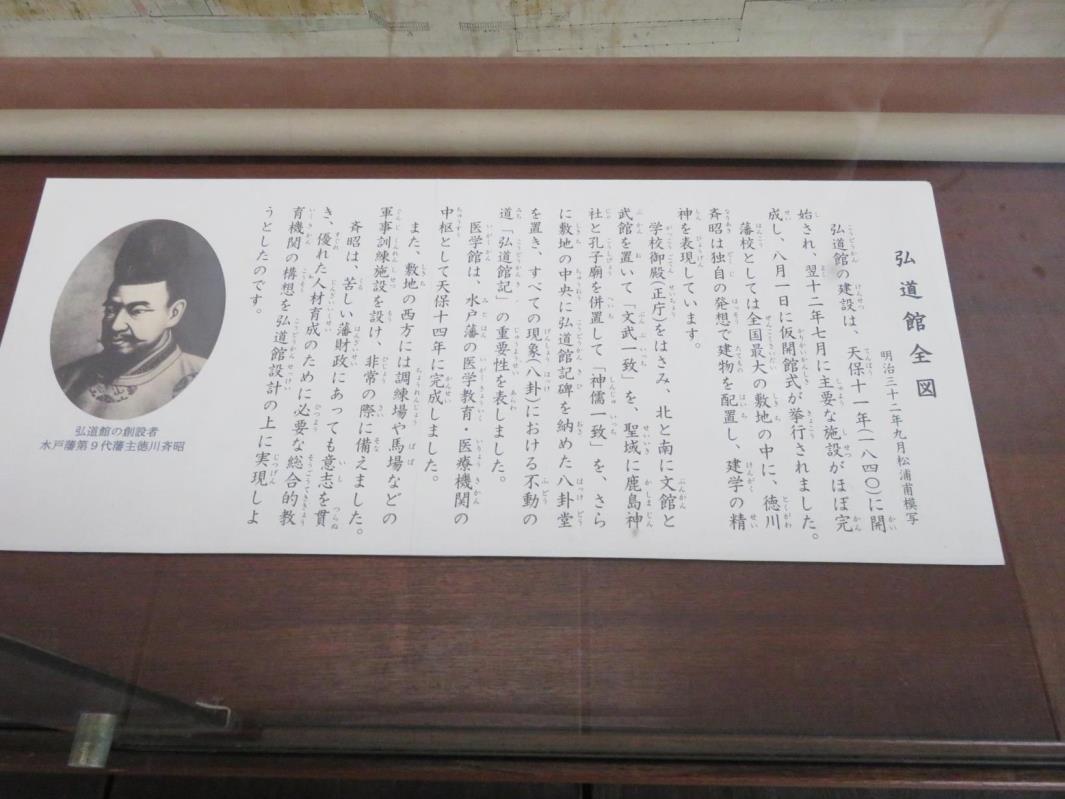 弘道館全図
明治三十二年九月松浦甫模写
弘道館の建設は、天保十一年(一八四〇)に開
始され、翌十二年七月に主要な施設がほぼ完
成し、八月一日に仮開館式が挙行されました。
藩校としては全国最大の敷地の中に、徳川
斉昭は独自の発想で建物を配置し、建学の精
神を表現しています。
学校御殿(正庁)をはさみ、北と南に文館と
武館を置いて「文武一致」を、聖域に鹿島神
社と孔子廟を併置して「神儒一致」を、さら
に敷地の中央に弘道館記碑を納めた八卦堂
を置き、すべての現象(八卦)における不動の
道「弘道館記」の重要性を表しました。
医学館は、水戸藩の医学教育・医療機関の
中枢として天保十四年に完成しました。
また、敷地の西方には調練場や馬場などの
軍事訓練施設を設け、非常の際に備えました。
斉昭は、苦しい藩財政にあっても意志を貫
き、優れた人材育成のために必要な総合的教
育機関の構想を弘道館設計の上に実現しよ
うとしたのです。
弘道館の創設者
水戸藩第9代藩主徳川斉昭